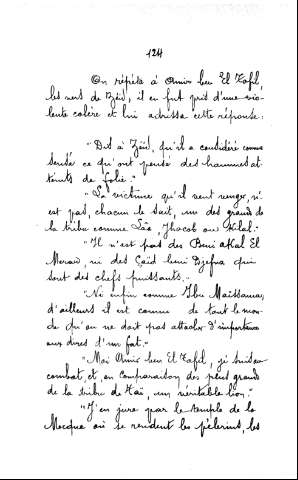 124
On répéta à Amir ben El Tofil,
les vers de Zeid, il en fut pris d'une vio-
lente colère et lui adressa cette réponse:
"Dis à Zeïd, qu'il a considéré comme
sensé ce qu'ont pensé des hommes at-
teints de folie."
"La victime qu'il veut venger, n'
est pas, chacun le sait, un des grands de
la tribu comme Lâa, Jhacob ou Kilal."
"Il n'est pas des Beni aKal El
Meraw, ni des Çaid beni Djefna qui
sont des chefs puissants."
"Ni enfin comme Ibn Maissama,
d'ailleurs il est connu de tout le mon-
de qu'on ne doit pas attacher d'importance
aux dires d'un fat."
"Moi Amir ben El Tofil, je suis au
combat, et en comparaison des plus grands
de la tribu de Taï, un véritable lion."
"J'en jure par le temple de la
Mecque où se rendent les pèlerins, les